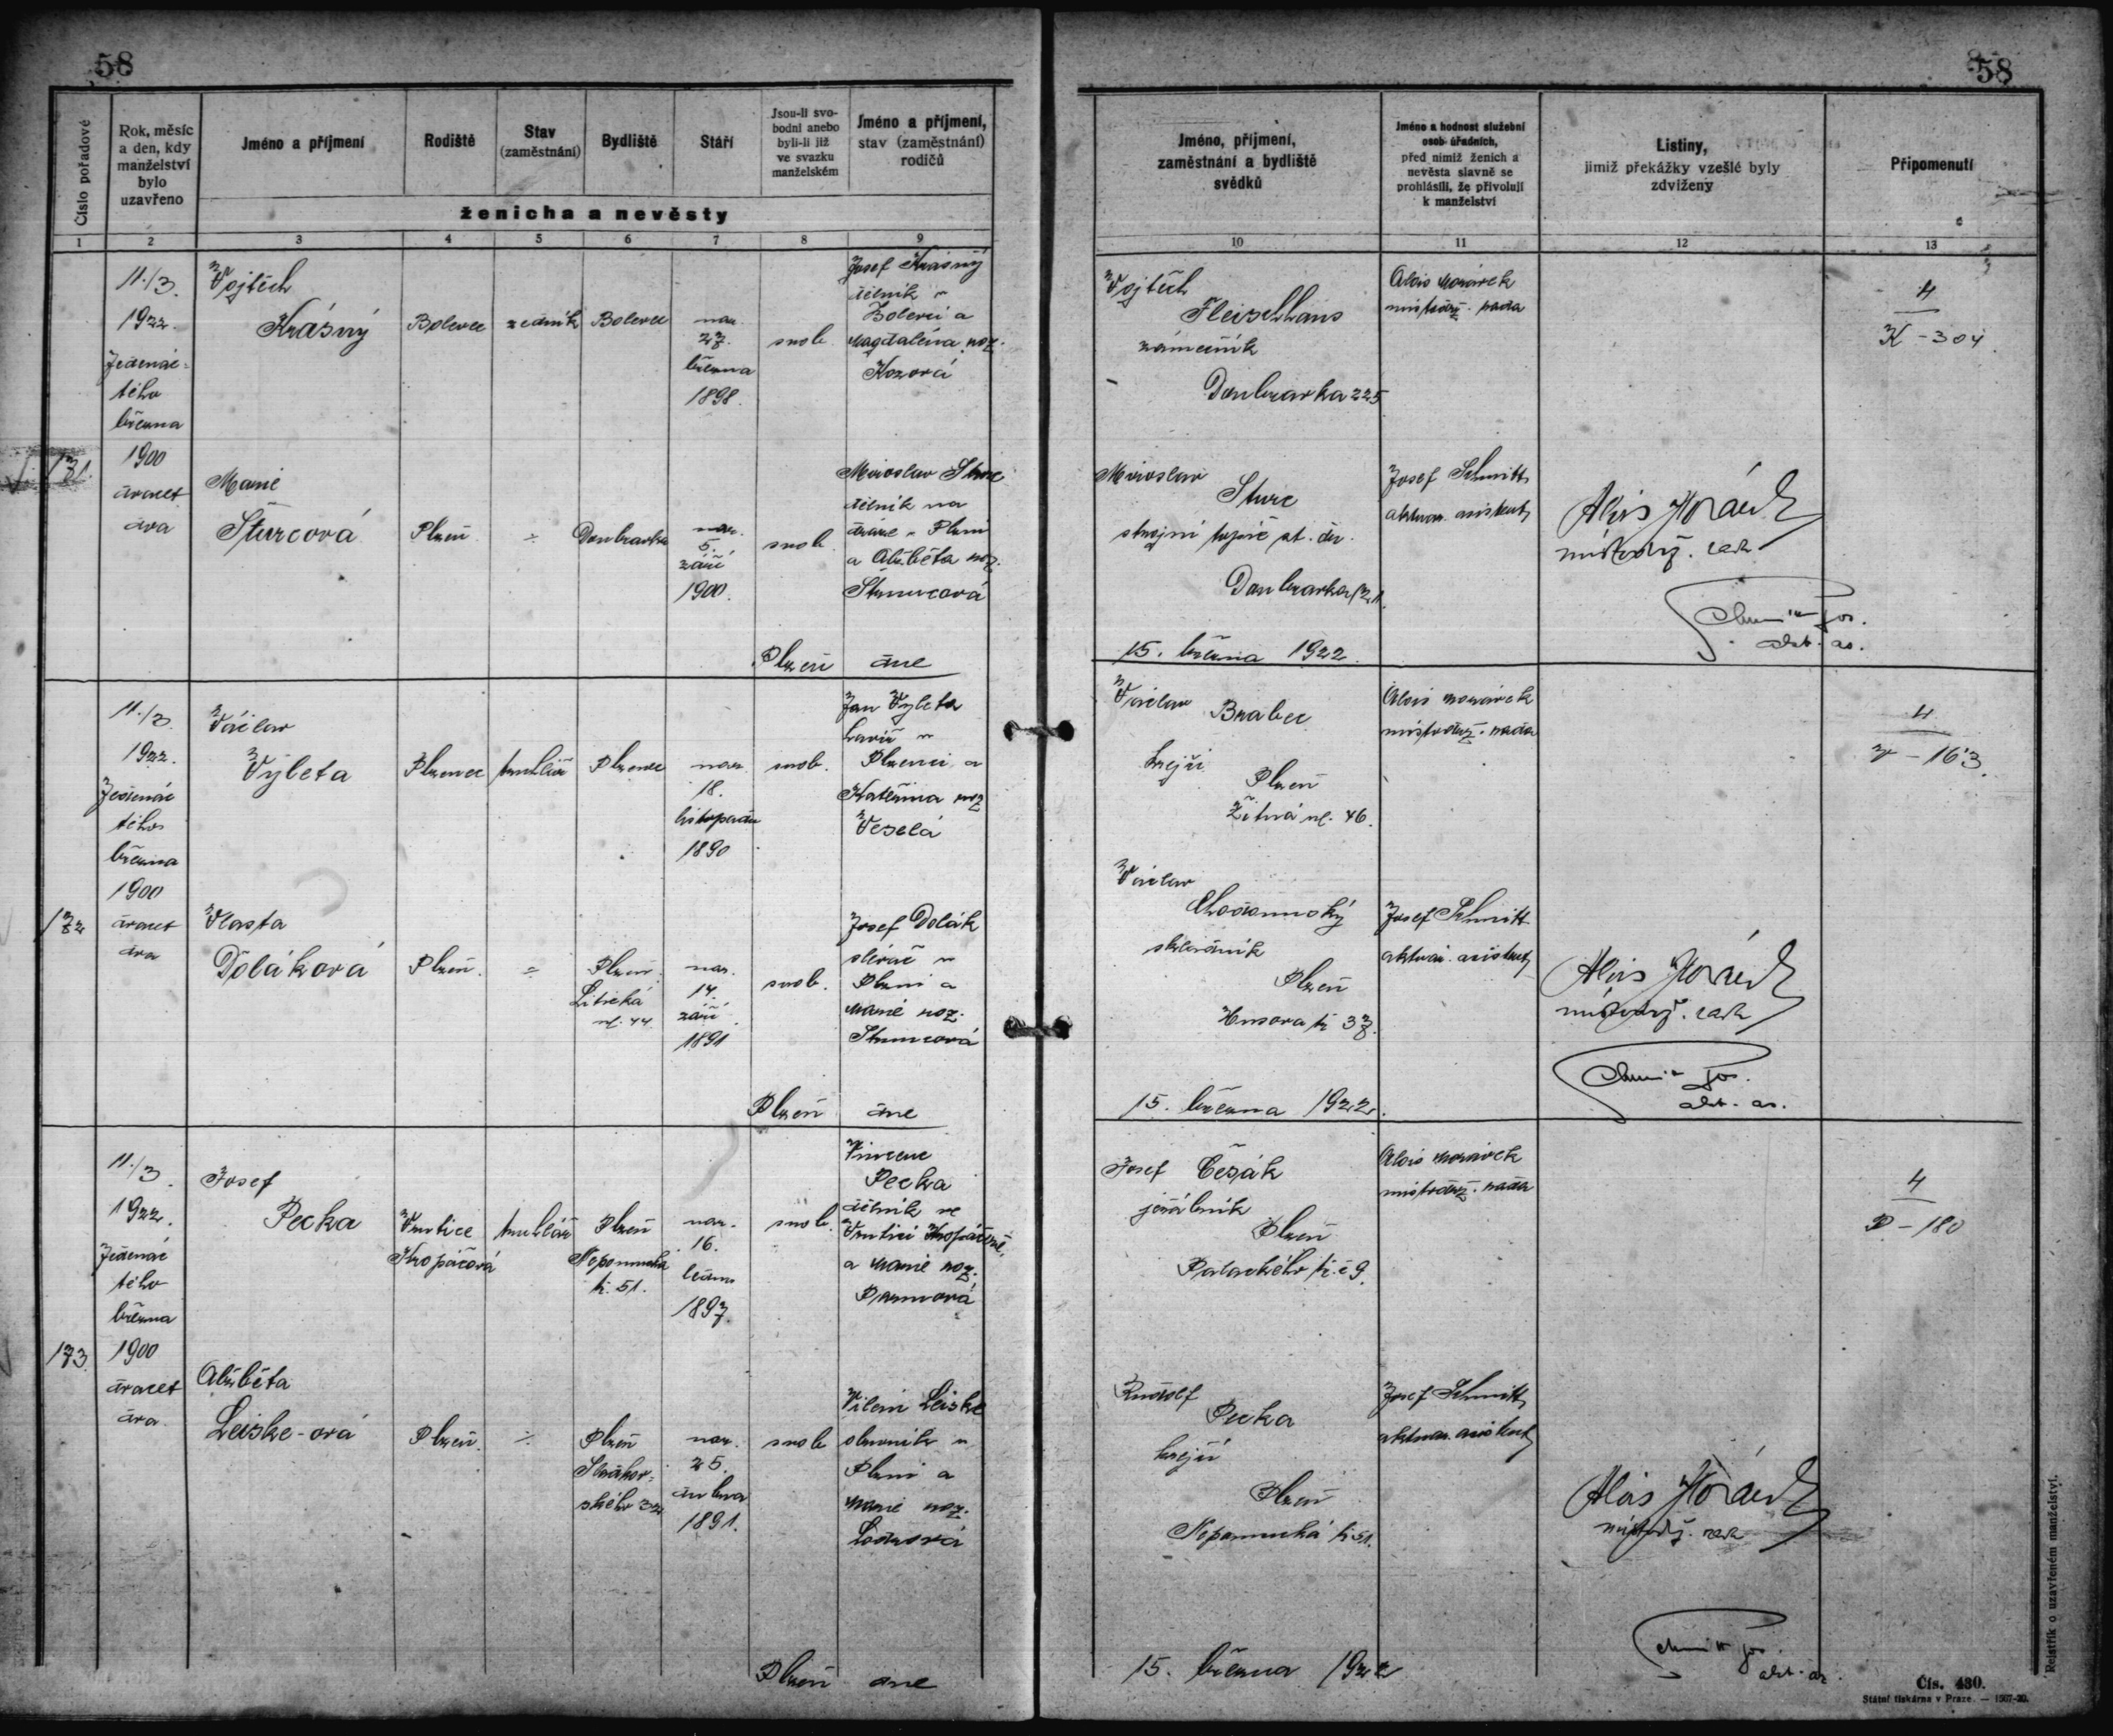 58
58
Číslo pořadové
Rok, měsíc
a den, kdy
manželství
bylo
uzavřeno
Jméno a příjmení
Rodiště
Stav
(zaměstnání)
Bydliště
Stáří
Jsou-li svo-
bodni anebo
byli-li již
ve svazku
manželském
Jméno a příjmení,
stav (zaměstnání)
rodičů
ženicha a nevěsty
Jméno, příjmení,
zaměstnání a bydliště
svědků
Jméno a hodnost služební
osob úředních,
před nimiž ženich a
nevěsta slavně se
prohlásili, že přivolují
k manželství
Listiny,
jimiž překážky vzešlé byly
zdviženy
Připomenutí
1 2 3 4 5 6 7 8 9 10 11 12 13
171.
11./3.
1922.
Jedenác-
tého
března
1900
dvacet
dva
Vojtěch
Krásný
Bolevec
zedník
Bolevec
nar.
27.
března
1898.
svob.
Josef Krásný
dělník v
Bolevci a
Magdalena roz.
Kozová
Marie
Šturcová
Plzeň
÷
Doubravka
nar.
5.
září
1900.
svob.
Miroslav Sturc
dělník na
dráze v Plzni
a Alžběta roz.
Vojtěch
Fleischhans
zámečník
Doubravka 225
Miroslav
Sturc
strojní topič st. dr.
Doubravka
Alois Morávek
místodrž. rada
Josef Schmitt
aktuar. asistent
místodrž. rada
akt. as.
4
K - 304.
Plzeň dne
15. března 1922.
172
11./3.
1922.
Jedenác
tého
března
1900
dvacet
dva
Václav
Výleta
Plzenec
truhlář
Plzenec
nar.
18.
listopadu
1890
svob.
Jan Výleta
v
Plzenci a
Kateřina roz
Veselá
Vlasta
Doláková
Plzeň.
÷
Plzeň
Litická
ul. 44
nar.
14.
září
1891
svob.
Josef Dolák
slévač v
Plzni a
Marie roz.
Václav Brabec
krejčí
Plzeň
Žitná ul. 46.
Václav
Plzeň
Husova tř. 37.
Alois Morávek
místodrž. rada
Josef Schmitt
aktuar. asistent
místodrž. rada
akt. as.
4
V - 163.
Plzeň dne
15. března 1922.
173.
11./3.
1922.
Jedenác
tého
března
1900
dvacet
dva
Josef
Pecka
Vrutice
Kropáčová
truhlář
Plzeň
Nepomucká
tř. 51.
nar.
16.
ledna
1897
svob.
Vincenc
Pecka
dělník ve
Vrutici Kropáčové,
a Marie roz.
Alžběta
Leiske-ová
Plzeň.
÷
Plzeň
nar.
25.
dubna
1891.
svob
Vilém Leiske
v
Plzni a
Marie roz.
Josef Češák
jeřábník
Plzeň
Palackého tř. č 9.
Rudolf
Pecka
krejčí
Plzeň
Nepomucká tř. 51.
Alois Morávek
místodrž. rada
Josef Schmitt
aktuar. asistent
místodrž. rada
akt. as.
4
P - 180
Plzeň dne
15. března 1922
Rejstřík o uzavřeném manželství.
Čís. 430.
Státní tiskárna v Praze. — 1507-20.